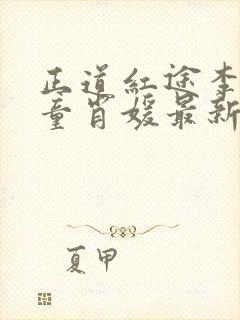 正道红途李
童肖媛最新
夏甲